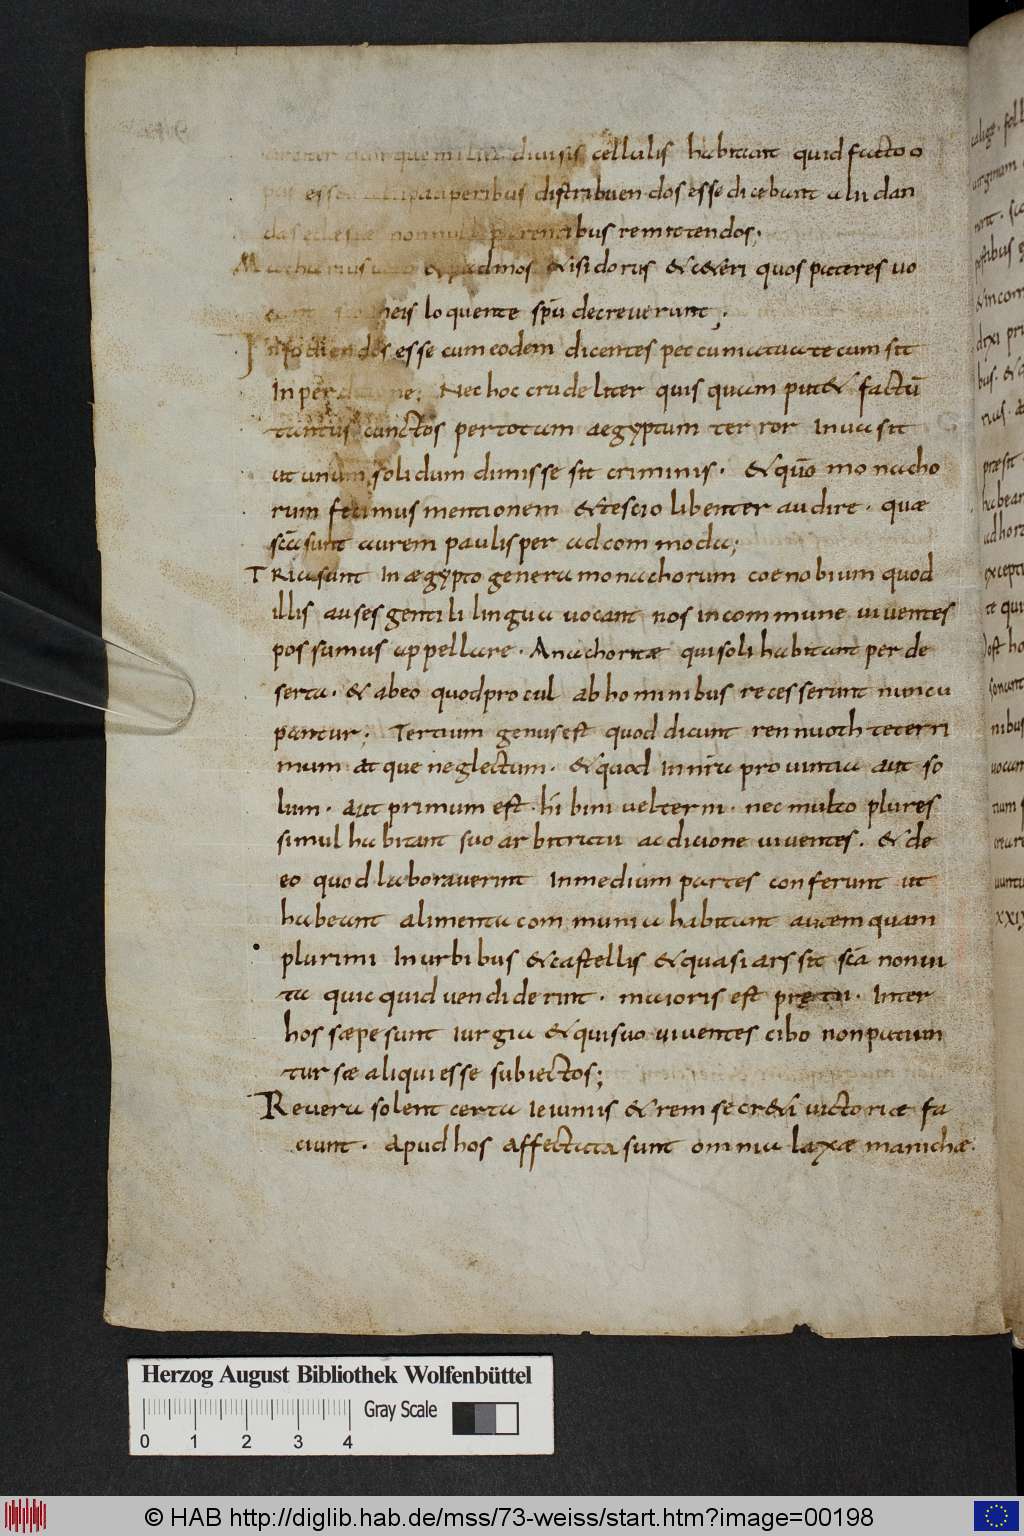 diuisis cellulis habitant quid facto o
pauperibus distribuendos esse dicebant alii dan
parentibus remittendos.
Macharius & padmos & isidorus & c&eri quos pateres uo
eis loquente spū decreuerunt;
Infodiendos esse cum eodem dicentes peccunia tua tecum sit
In per Nec hoc crudeliter quis quam put& factū
tantus cunctos per totam aegyptum terror Inuasit
ut unum solidum dimisse sit criminis. & quō monacho
rum fecimus mentionem & te scio libenter audire. quæ
scā sunt aurem paulisper adcommoda;
TRia sunt In ægypto genera monachorum coenobium quod
illis auses gentili lingua uocant nos in commune uiuentes
possumus appellare. Anachoritæ qui soli habitant per de
serta. & ab eo quod procul ab hominibus recesserunt nuncu
pantur; Tertium genus est quod dicunt remnuoth teterri
mum atque neglectum. & quod In nrā prouintia aut so
lum. aut primum est. hi bini uel terni. nec multo plures
simul habitant suo arbitratu ac dicione uiuentes. & de
eo quod laborauerint In medium partes conferunt ut
habeant alimenta communia habitant autem quam
plurimi In urbibus & castellis & quasi ars sit scā non ui
ta quicquid uendiderint. maioris est prętii. Inter
hos sæpe sunt iurgia & qui suo uiuentes cibo non patiun
tur sæ aliqui esse subiectos;
Reuera solent certa ieiuniis & rem secr&i uictoriæ fa
ciunt. apud hos affectata sunt omnia laxæ manichæ.
Herzog August Bibliothek Wolfenbüttel
Gray Scale
0 1 2 3 4
© HAB http://diglib.hab.de/mss/73-weiss/start.htm?image=00198